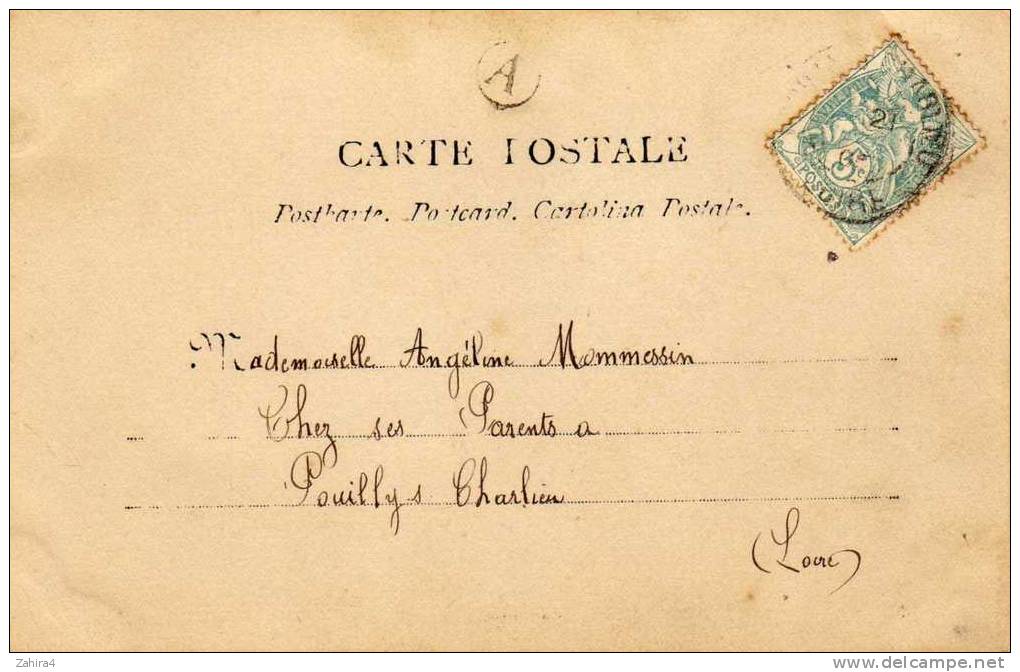 A
CARTE POSTALE
Postkarte. Postcard. Cartolina Postale.
21
5c
POSTES
Mademoiselle Angéline Mommessin
Chez ses Parents a
Pouilly s Charlieu
(Loire)
Zahira4
www.delcampe.net